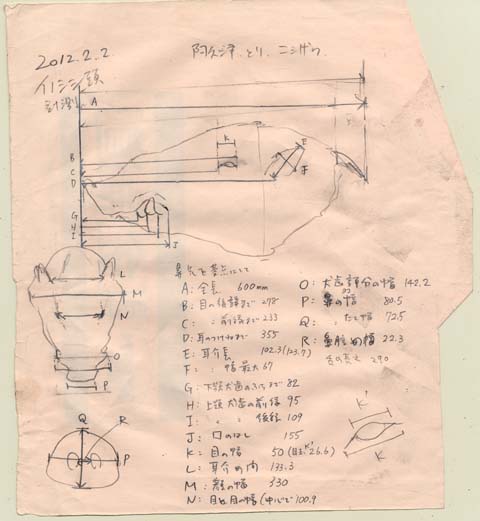 2012.2.2
阿久津、とり、ニシザワ
イノシシ頭
計測
A
K
B
C
D
E
F
G
H
I
J
L
M
N
O
P
Q
R
P
K'
K
鼻先を基点にして
A: 全長 600mm
B: 目の後端まで 278
C: 〃 前端まで 233
D: 耳のつけねまで 355
E: 耳介長 102.3 (123.7)
F: 〃 幅最大 67
G: 下顎犬歯のふちまで 82
H: 上顎犬歯の前縁 95
I 〃 〃 後縁 109
J 口のはし 155
K: 目の幅 50 (目玉K' 26.6)
L: 耳介の間 133.3
M: 顔の幅 330
N: 目と目の幅(中心で 100.9
O: 犬歯部分の幅 142.2
P: 鼻の幅 80.5
Q: たて幅 72.5
R: 鼻腔の幅 22.3
290